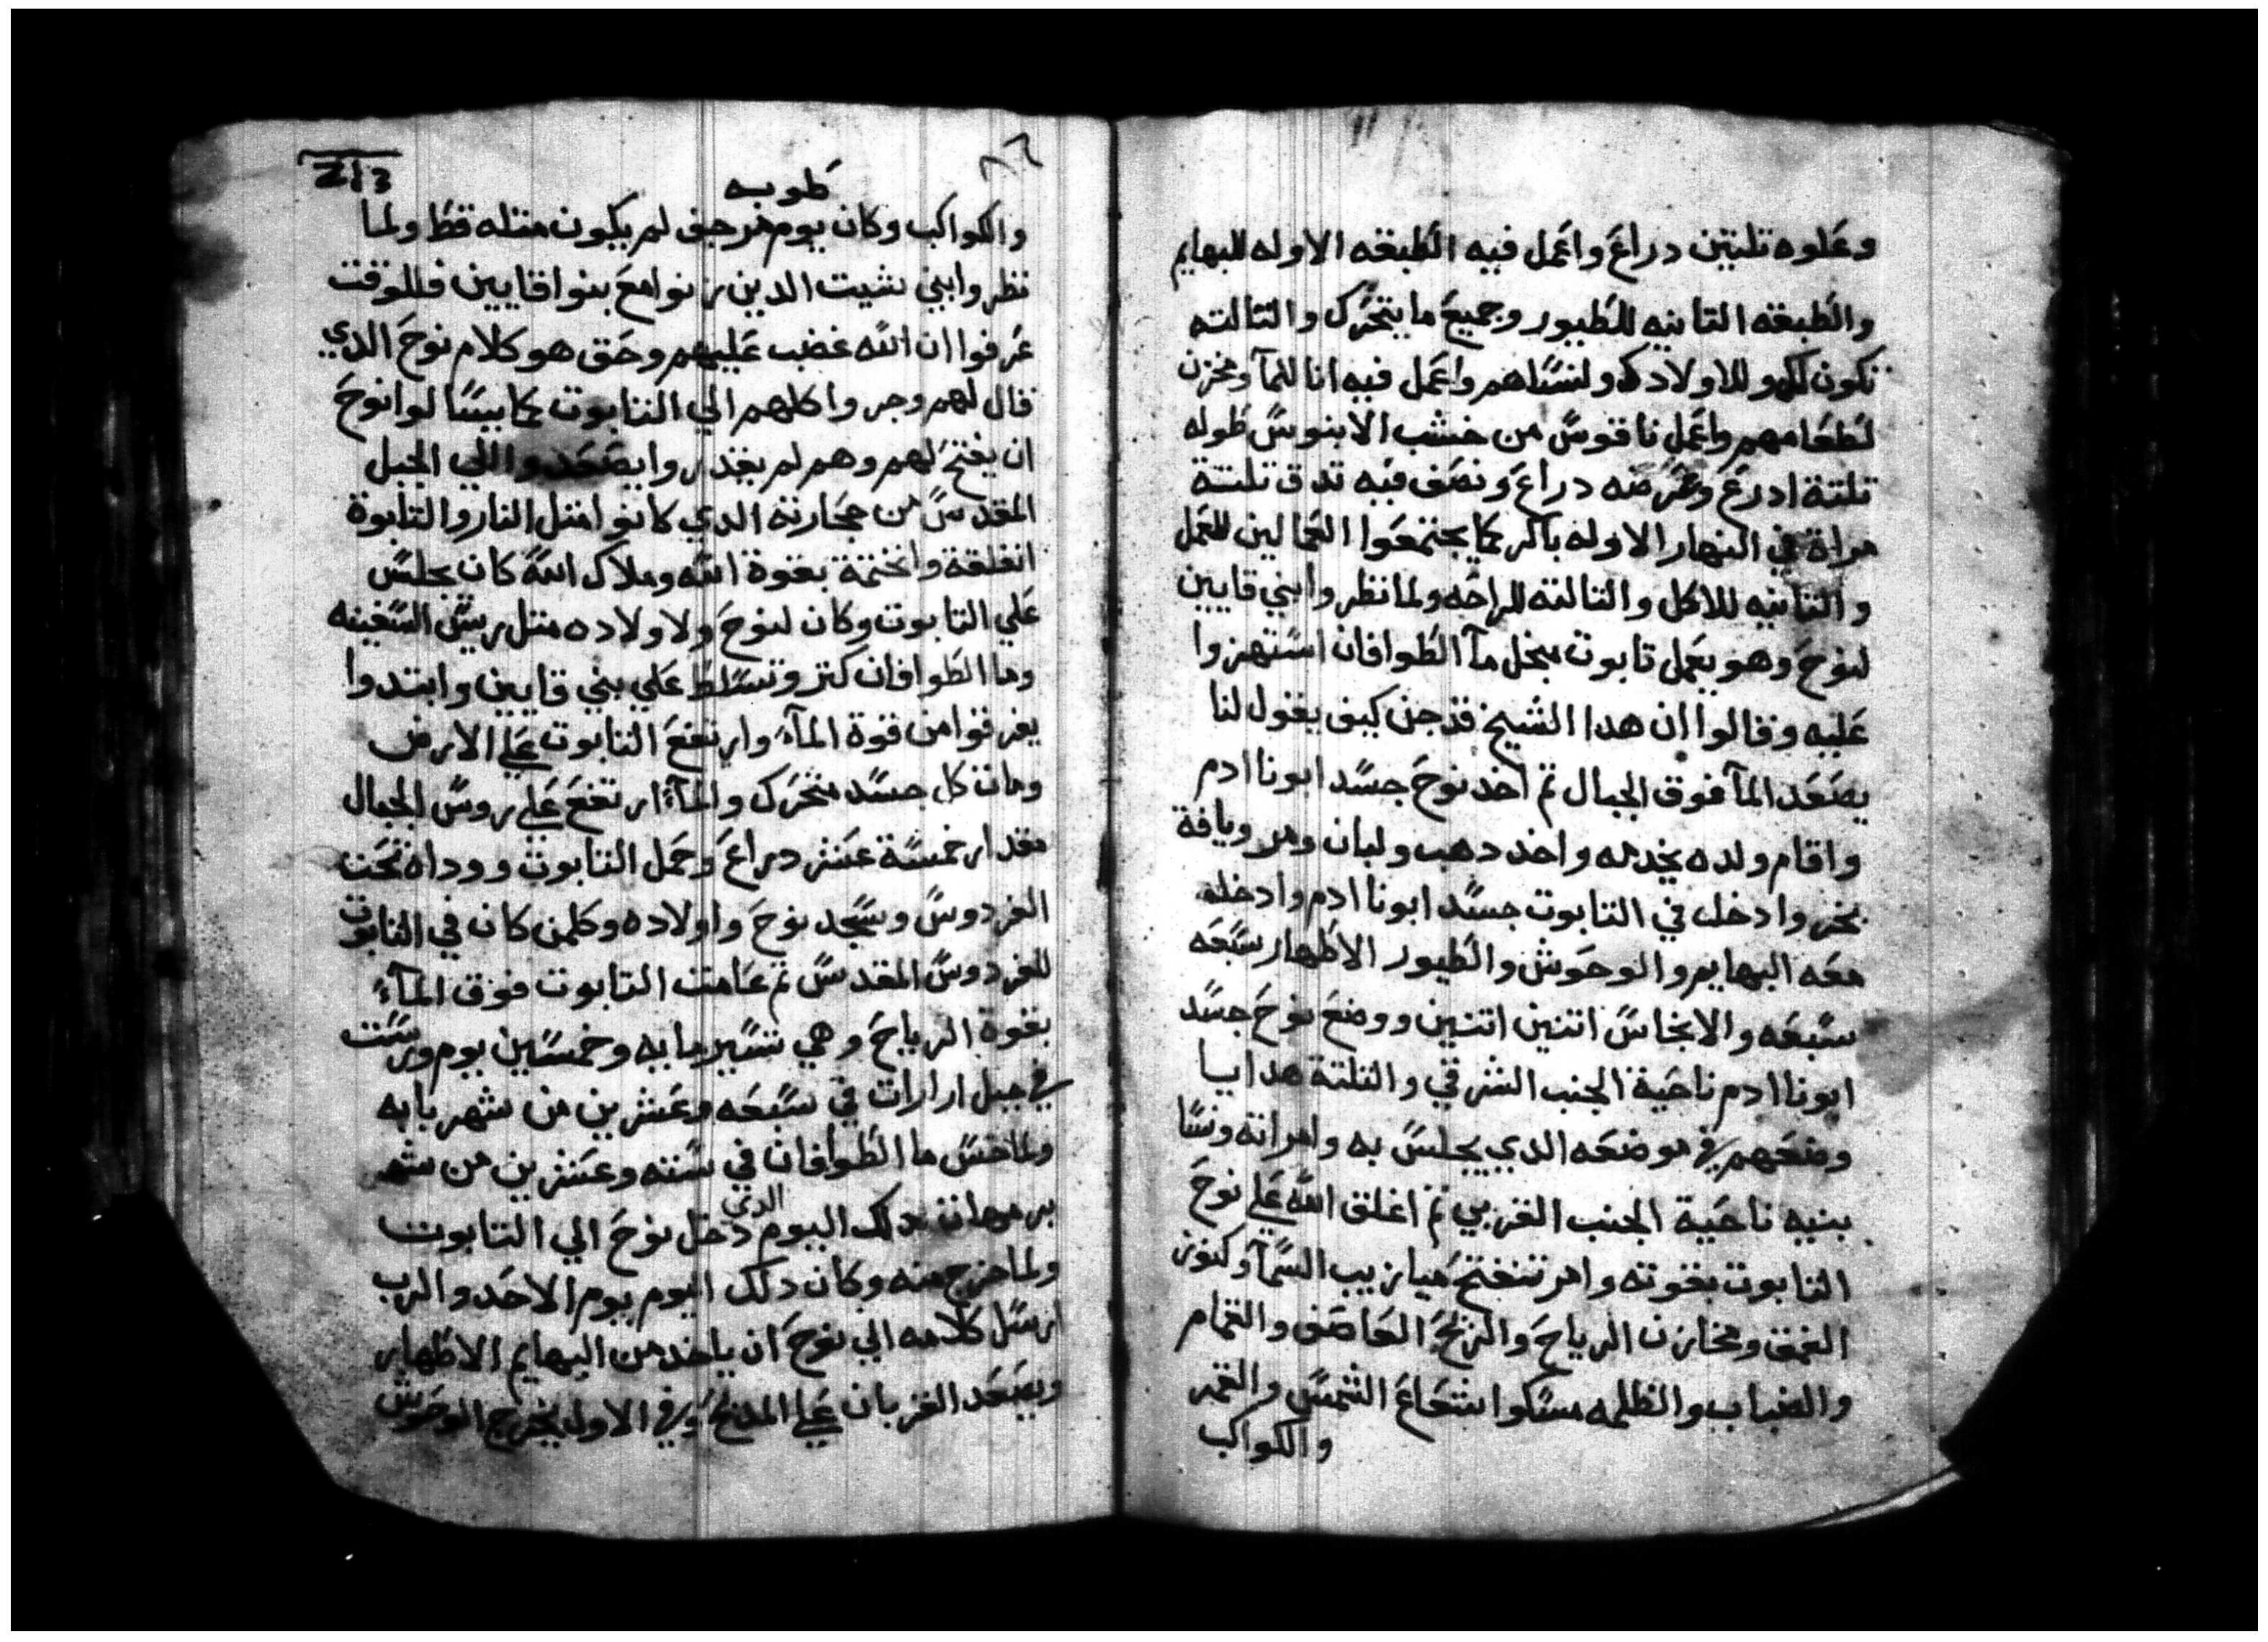 وعلوه تلتين دراع واعمل فيه الطبقه الاوله للبهايم
والطبقه التانيه للطيور وجميع ما يتحرك والتالته
تكون لك وللاولادك ولنساهم واعمل فيه انا للمآ ومخزن
لطعامهم واعمل ناقوس من خشب الابنوس طوله
تلتة ادرع وعرضه دراع ونصف فيه تدق تلتة
مراة في النهار الاوله باكر كما يجتمعوا العمالين للعمل
والتانيه للاكل والتالته للراحه ولما نظروا بني قايين
لنوح وهو يعمل تابوت منجل مآ الطوافان استهزوا
عليه وقالوا ان هدا الشيخ قد جن كيف يقول لنا
يصعد المآ فوق الجبال تم اخد نوح جسد ابونا ادم
واقام ولده يخدمه واخد دهب ولبان ومر وباقة
بخر وادخل في التابوت جسد ابونا ادم وادخله
معه البهايم والوحوش والطيور الاطهار سبعه
سبعه والانجاس اتنين اتنين ووضع نوح جسد
ابونا ادم ناحية الجنب الشرقي والتلتة هدايا
وضعهم في موضعه الدي يجلس به وامراته ونسا
بنيه ناحية الجنب الغربي تم اغلق الله علي نوح
التابوت بقوته وامر تنفتح ميازيب السمآ وكنوز
الغمق ومخازن الرياح والريح العاصف والغمام
والضباب والظلمه مسكوا شعاع الشمس والقمر
والكواكب
213
طوبه
والكواكب وكان يوم مرجف لم يكون متله قط ولما
نظروا بني شيت الدين زنوا مع بنوا قايين فللوقت
عرفوا ان الله غضب عليهم وحق هو كلام نوح الدي
قال لهم وجروا كلهم الي التابوت كما يسالوا نوح
ان يفتح لهم وهم لم يقدروا يصعدوا الي الجبل
المقدس من حجارته الدي كانوا متل النار والتابوة
انغلقة وانختمة بقوة الله وملاك الله كان يجلس
علي التابوت وكان لنوح ولاولاده متل ريس السفينه
وما الطوافان كتر وتسلط علي بني قايين وابتدوا
يغرقوا من قوة المآء وارتفع التابوت علي الارض
ومات كل جسد متحرك والمآء ارتفع علي روس الجبال
مقدار خمسة عشر دراع وحمل التابوت ووداه تحت
الفردوس وسجد نوح واولاده وكلمن كان في التابوت
للفردوس المقدس تم عامت التابوت فوق المآء
بقوة الرياح وهي تسير مايه وخمسين يوم ورست
في جبل ارارات في سبعه وعشرين من شهر بابه
ولما خس ما الطوافان في سته وعشرين من شهر
برمهات دلك اليوم الدي دخل نوح الي التابوت
ولما خرج منه وكان دلك اليوم يوم الاحد والرب
ارسل كلامه الي نوح ان ياخد من البهايم الاطهار
ويصعد القربان علي المدبح وفي الاول يخرج الوحوش